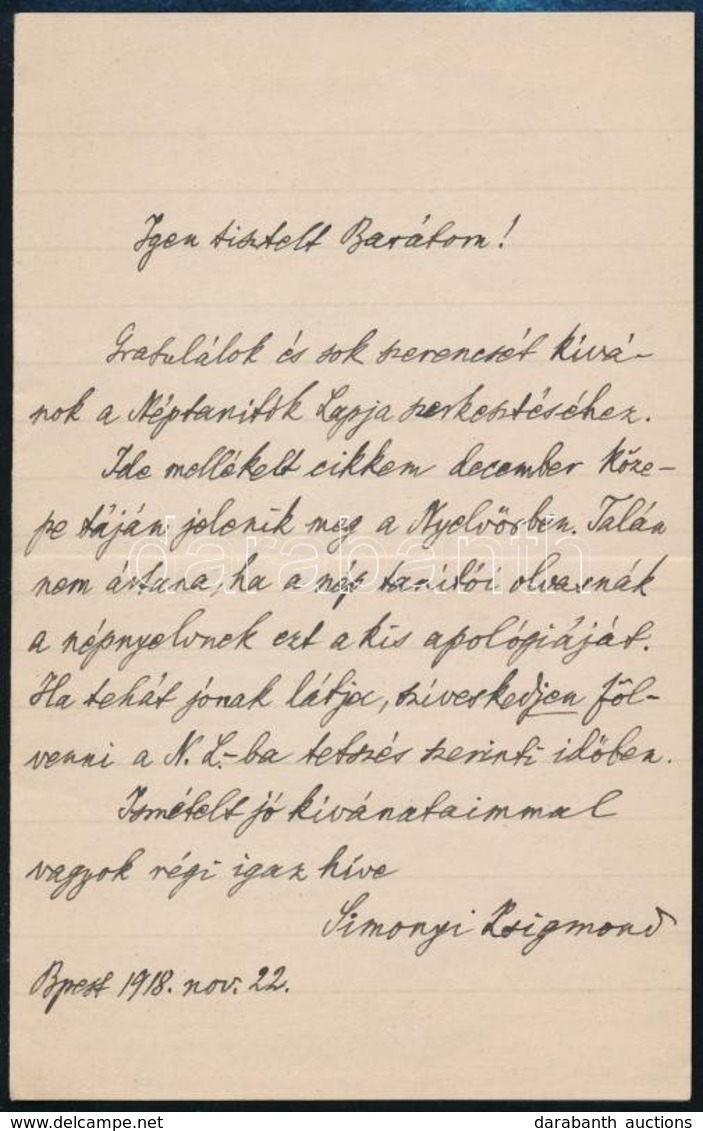 Igen tisztelt Barátom!
Gratulálok és sok szerencsét kívá-
nok a Néptanitók Lapja szerkesztéséhez.
Ide mellékelt cikkem december köze-
pe táján jelenik meg a Nyelvőrben. Talán
nem ártana, ha a nép tanítói olvasnák
a népnyelvnek ezt a kis apológiáját.
Ha tehát jónak látja, szíveskedjen föl-
venni a N. L.-ba tetszés szerinti időben.
Ismételt jó kívánataimmal
vagyok régi igaz híve
Simonyi Zsigmond
Bpest 1918. nov. 22.
darabanth
darabanth auctions